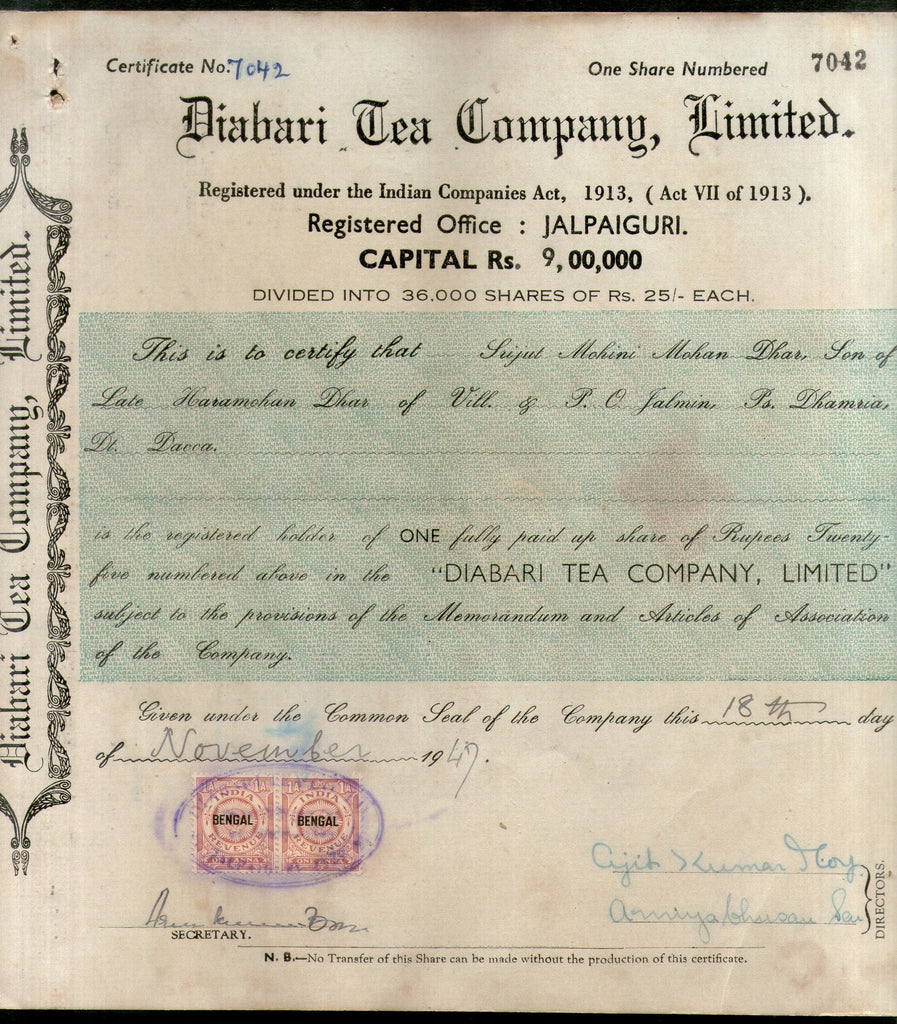 Certificate No. 7042
One Share Numbered 7042
Diabari Tea Company, Limited.
Registered under the Indian Companies Act, 1913, ( Act VII of 1913 ).
Registered Office : JALPAIGURI.
CAPITAL Rs. 9,00,000
DIVIDED INTO 36,000 SHARES OF Rs. 25/- EACH.
This is to certify that Srijut Mohini Mohan Dhar, Son of
Late Haramohan Dhar of Vill. & P. O. Jalmin, Ps. Dhamria,
Dt. Dacca.
is the registered holder of ONE fully paid up share of Rupees Twenty-
five numbered above in the "DIABARI TEA COMPANY, LIMITED"
subject to the provisions of the Memorandum and Articles of Association
of the Company.
Given under the Common Seal of the Company this 18th day
of November 1947.
1A 1A
INDIA INDIA
BENGAL BENGAL
REVENUE REVENUE
ONE ANNA ONE ANNA
Ajit Kumar Roy
Amiya bhusan Sen
DIRECTORS.
SECRETARY.
N. B.—No Transfer of this Share can be made without the production of this certificate.
Diabari Tea Company, Limited.